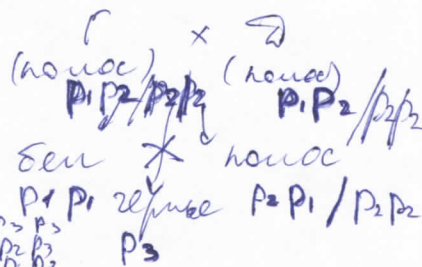 Г × Д
(полос) (полос)
P₁P₂/P₂P₂ P₁P₂/P₂P₂
бел × полос
P₁P₁ чёрные P₂P₁/P₂P₂
P₃ P₃
P₂ P₃ P₃